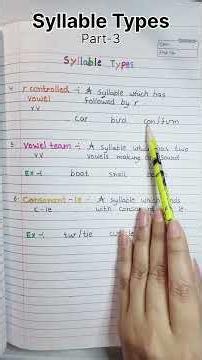 Syllable Types
Part-3
Syllable Types
r controlled :- A syllable which has
vowel followed by r
car bird con/firm
5. Vowel team :- A syllable which has two
vowels making sound
Ex -: boat snail
6. Consonant-le :- A syllable which ends
c-le with consonant le.
Ex -: tur/tle